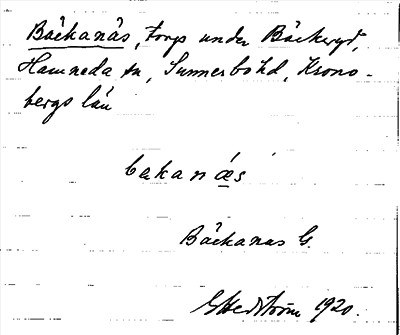 Bäckanäs, torp under Bäckeryd,
Hamneda sn, Sunnerbo hd, Krono-
bergs län
bakanæ̀s
Bäckanas G.
G Hedström 1920.